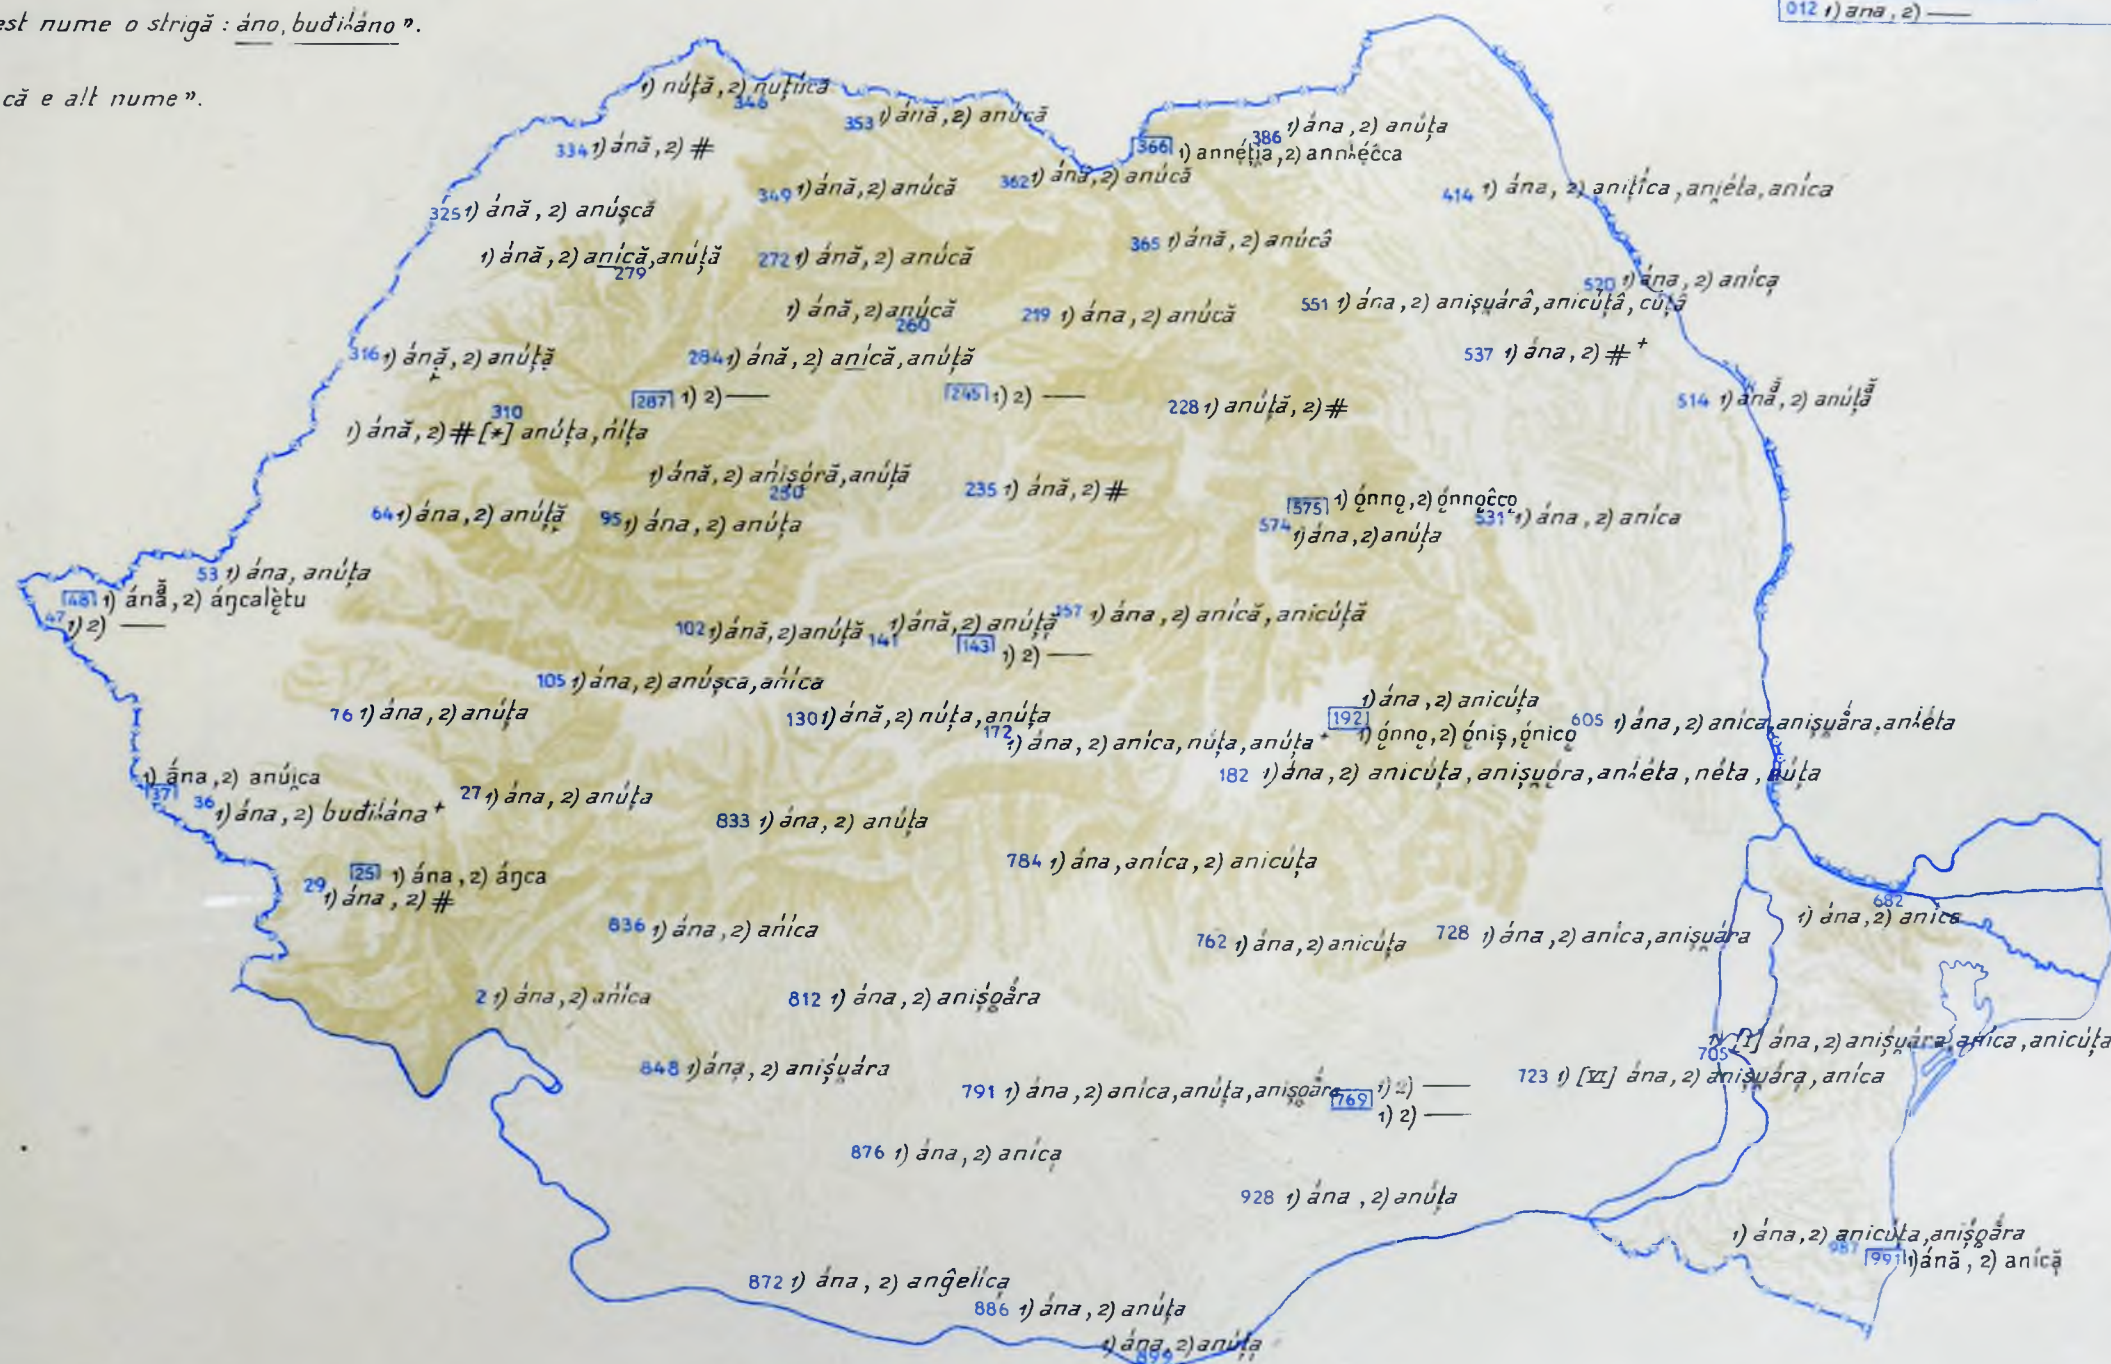 est nume o strigă : áno, buđiʎáno ”.
că e alt nume ”.
012 1) ana, 2) —
1) núță, 2) nuțúcă
346
353 1) ánă, 2) anúcă
334 1) ánă, 2) #
386 1) ána, 2) anúța
366 1) annéția, 2) annʎéĉca
349 1) ánă, 2) anúcă
362 1) ánă, 2) anúcă
414 1) ána, 2) anițíca, aniéta, aníca
325 1) ánă, 2) anúșcă
365 1) ánă, 2) anúcâ
1) ánă, 2) anícă, anúță
279
272 1) ánă, 2) anúcă
520 1) ána, 2) aníca
551 1) ána, 2) anișuárâ, anicúțâ, cúțâ
1) ánă, 2) anúcă
260
219 1) ána, 2) anúcă
316 1) ánă, 2) anúță
284 1) ánă, 2) anícă, anúță
537 1) ána, 2) # +
287 1) 2) —
245 1) 2) —
228 1) anúță, 2) #
514 1) ánă, 2) anúță
310
1) ánă, 2) # [*] anúța, níța
1) ánă, 2) anișóră, anúță
250
235 1) ánă, 2) #
575 1) ónno, 2) ónnoĉco
531 1) ána, 2) aníca
64 1) ána, 2) anúță
95 1) ána, 2) anúța
574 1) ána, 2) anúța
53 1) ána, anúța
48 1) ánă, 2) áŋcalètu
47 1) 2) —
102 1) ánă, 2) anúță
141 1) ánă, 2) anúță
157 1) ána, 2) anícă, anicúță
143 1) 2) —
105 1) ána, 2) anúșca, ańíca
76 1) ána, 2) anúța
130 1) ánă, 2) núța, anúța
172 1) ána, 2) aníca, núța, anúța +
192 1) ána, 2) anicúța
1) ónno, 2) óniș, ónico
605 1) ána, 2) aníca, anișuára, anʎéta
182 1) ána, 2) anicúța, anișuóra, anʎéta, néta, núța
37 1) ána, 2) anúica
36 1) ána, 2) buđiʎána +
27 1) ána, 2) anúța
833 1) ána, 2) anúța
784 1) ána, aníca, 2) anicúța
25 1) ána, 2) áŋca
29 1) ána, 2) #
682
1) ána, 2) aníca
836 1) ána, 2) ańíca
762 1) ána, 2) anicúța
728 1) ána, 2) aníca, anișuára
2 1) ána, 2) ańíca
812 1) ána, 2) anișoára
705 1) [I] ána, 2) anișuára, aníca, anicúța
848 1) ána, 2) anișuára
791 1) ána, 2) aníca, anúța, anișoára
769 1) 2) —
1) 2) —
723 1) [VI] ána, 2) anișuára, aníca
876 1) ána, 2) aníca
928 1) ána, 2) anúța
1) ána, 2) anicúța, anișoára
987
991 1) ánă, 2) anícă
872 1) ána, 2) anĝelíca
886 1) ána, 2) anúța
1) ána, 2) anúța
899